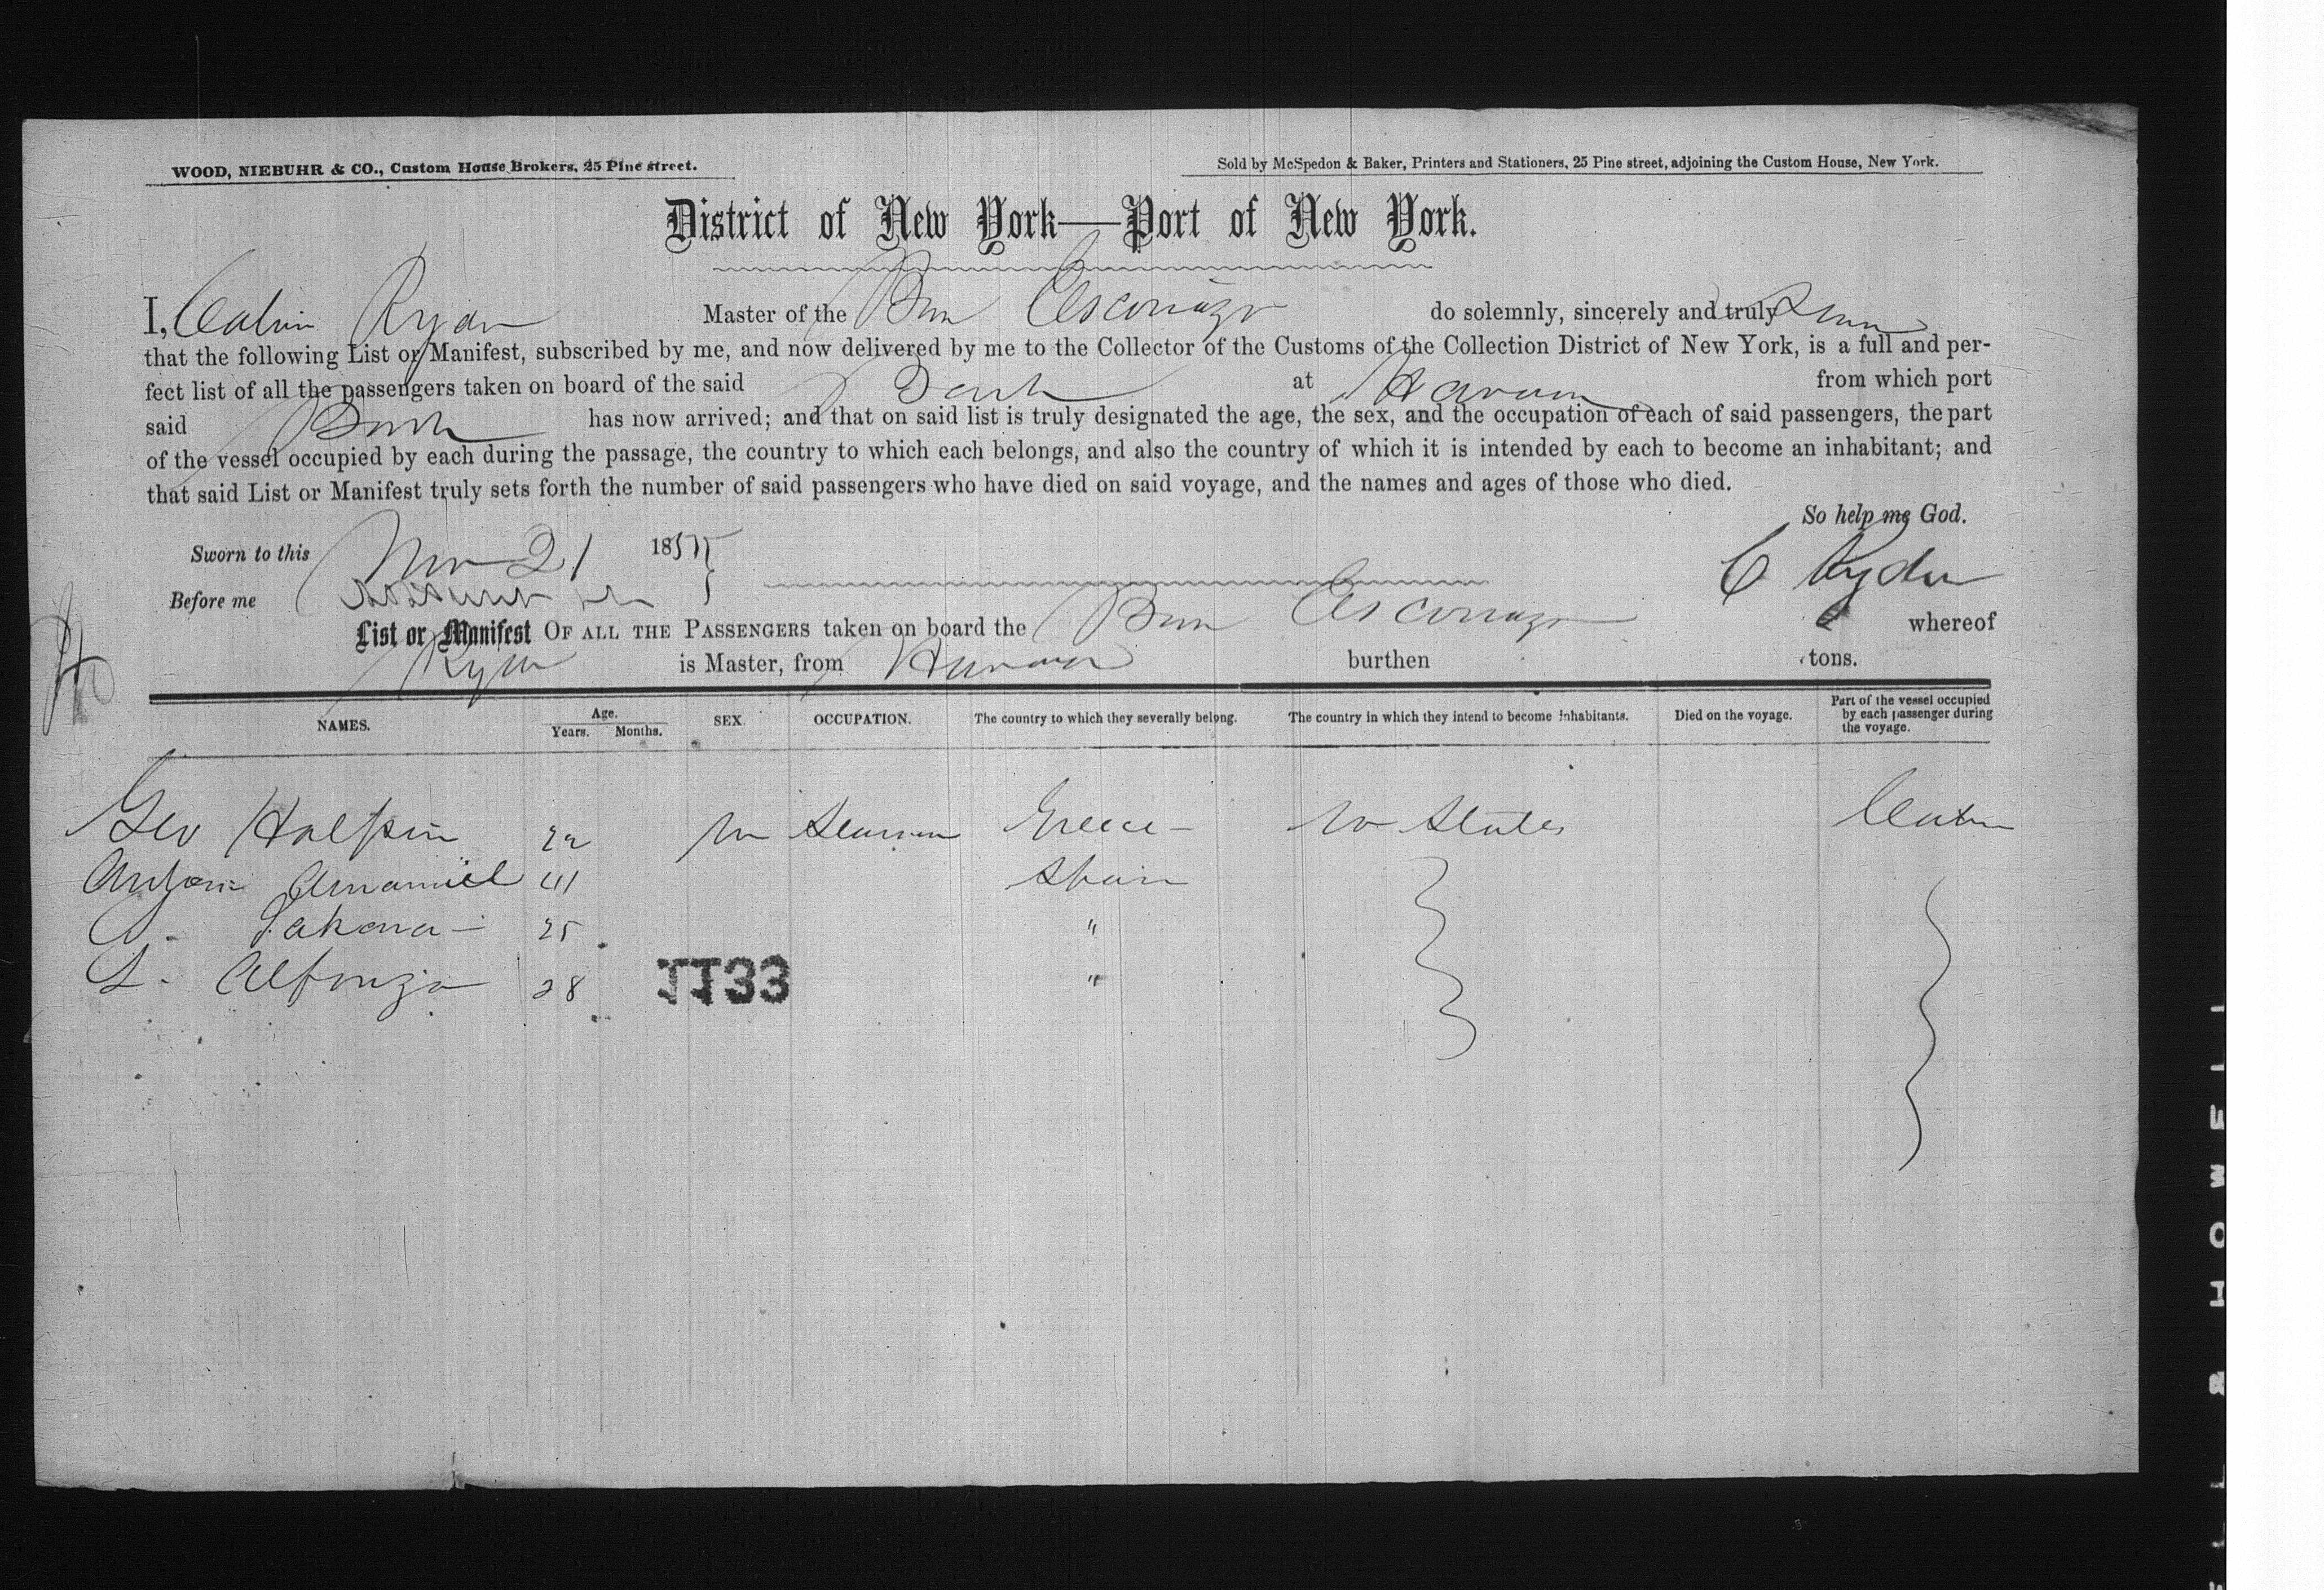 WOOD, NIEBUHR & CO., Custom House Brokers, 25 Pine street.
Sold by McSpedon & Baker, Printers and Stationers, 25 Pine street, adjoining the Custom House, New York.
District of New York—Port of New York.
I, Calvin Ryder Master of the do solemnly, sincerely and truly
that the following List or Manifest, subscribed by me, and now delivered by me to the Collector of the Customs of the Collection District of New York, is a full and per-
fect list of all the passengers taken on board of the said Bark at Havana from which port
said Bark has now arrived; and that on said list is truly designated the age, the sex, and the occupation of each of said passengers, the part
of the vessel occupied by each during the passage, the country to which each belongs, and also the country of which it is intended by each to become an inhabitant; and
that said List or Manifest truly sets forth the number of said passengers who have died on said voyage, and the names and ages of those who died.
So help me God.
Sworn to this Nov 21 185
C Ryder
Before me
List or Manifest OF ALL THE PASSENGERS taken on board the whereof
Ryder is Master, from Havana burthen tons.
NAMES. Age. Years. Months. SEX. OCCUPATION. The country to which they severally belong. The country in which they intend to become inhabitants. Died on the voyage. Part of the vessel occupied by each passenger during the voyage.
Geo Halpin 22 m Seaman Greece States Cabin
Amamiel 41 Spain
25 "
L. Alfonzo 28 "
1133